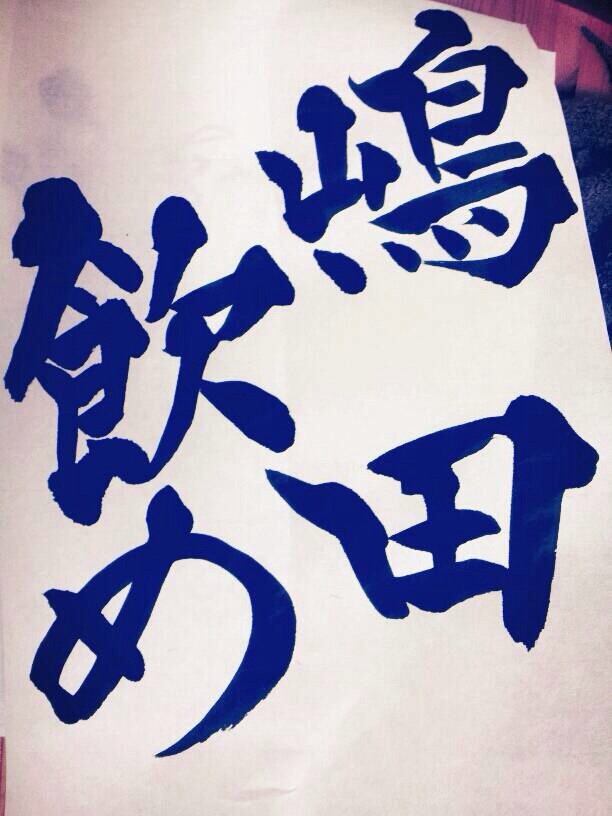 嶋田
飲め